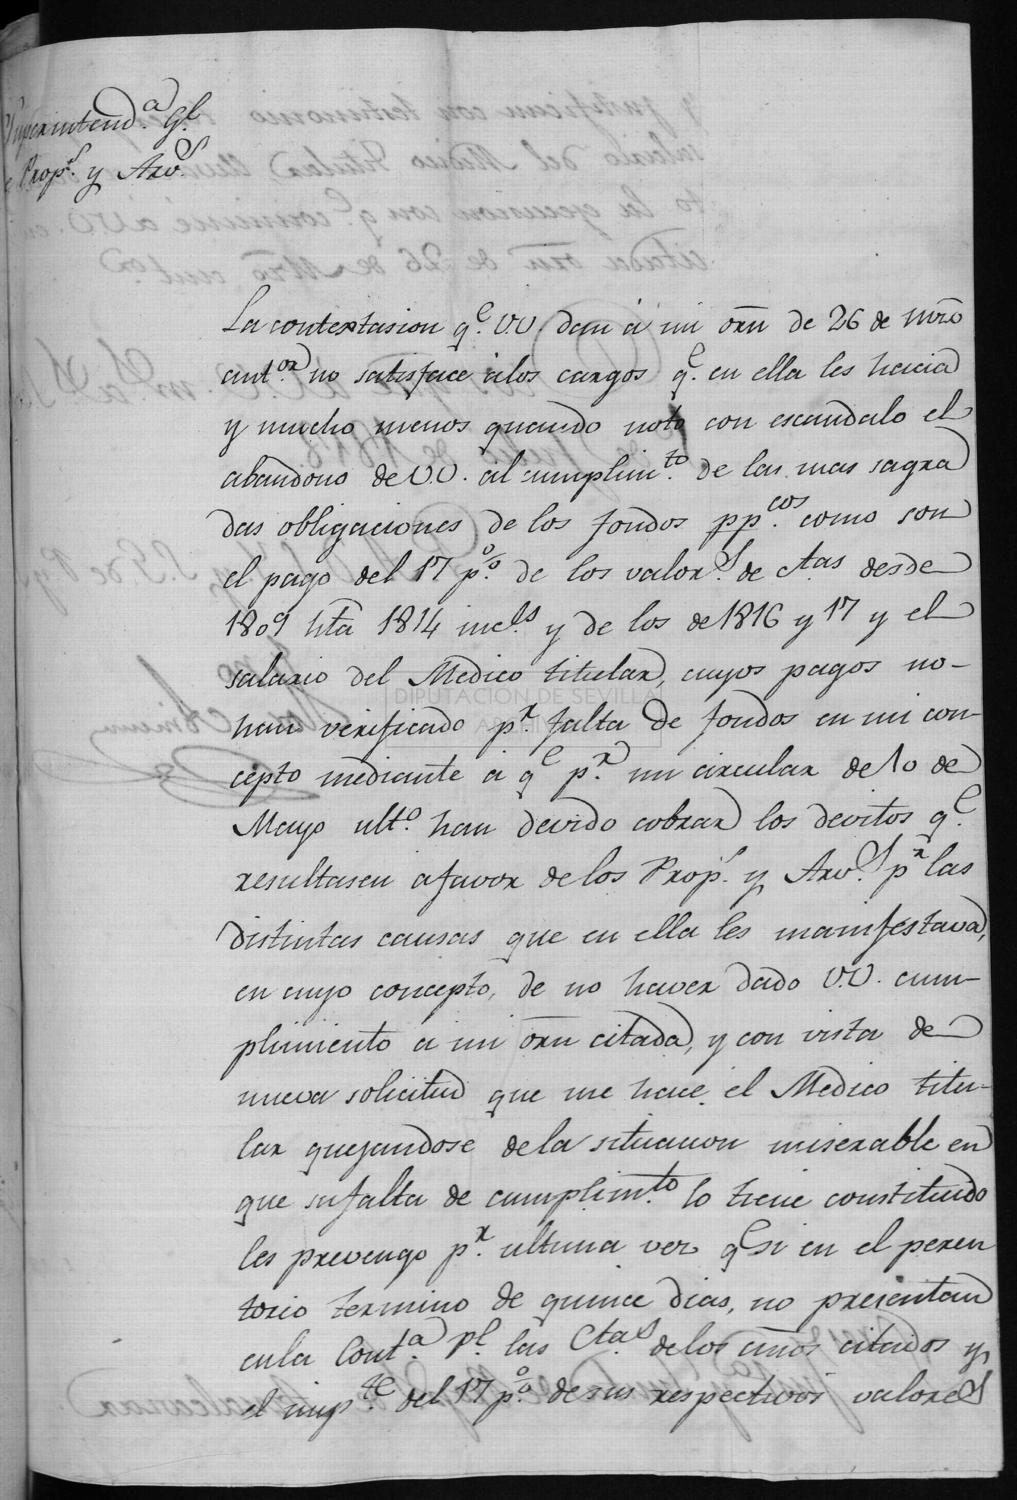 Superintend.ª G.l
de Prop.s y Arv.s
La contextasion q.e VV. dan á mi orn de 26 de Mrzo
ant.or no satisface álos cargos q.e en ella les hacia
y mucho menos quando noto con escandalo el
abandono de VV. al cumplim.to de las mas sagra
das obligaciones de los fondos pp.cos como son
el pago del 17 p.% de los valor.s de ctas desde
1809 hta 1814 incl.s y de los de 1816 y 17 y el
salario del Medico titular, cuyos pagos no-
han verificado p.r falta de fondos en mi con-
cepto mediante á q.e p.r mi circular de 10 de
Mayo ult.o han devido cobrar los devitos q.e
resultasen afavor de los Prop.s y Arv.s p.r las
distintas causas que en ella les manifestava,
en cuyo concepto, de no haver dado V.V. cum-
plimiento á mi orn citada, y con vista de
nueva solicitud que me hace el Medico titu-
lar quejandose dela situacion miserable en
que su falta de cumplim.to lo tiene constituido
les prevengo p.r ultima vez q.e si en el peren
torio termino de quince dias, no presentan
enla Cont.a P.l las Ctas de los años citados y
el imp.te del 17 p.% de sus respectivos valores
DIPUTACIÓN DE SEVILLA